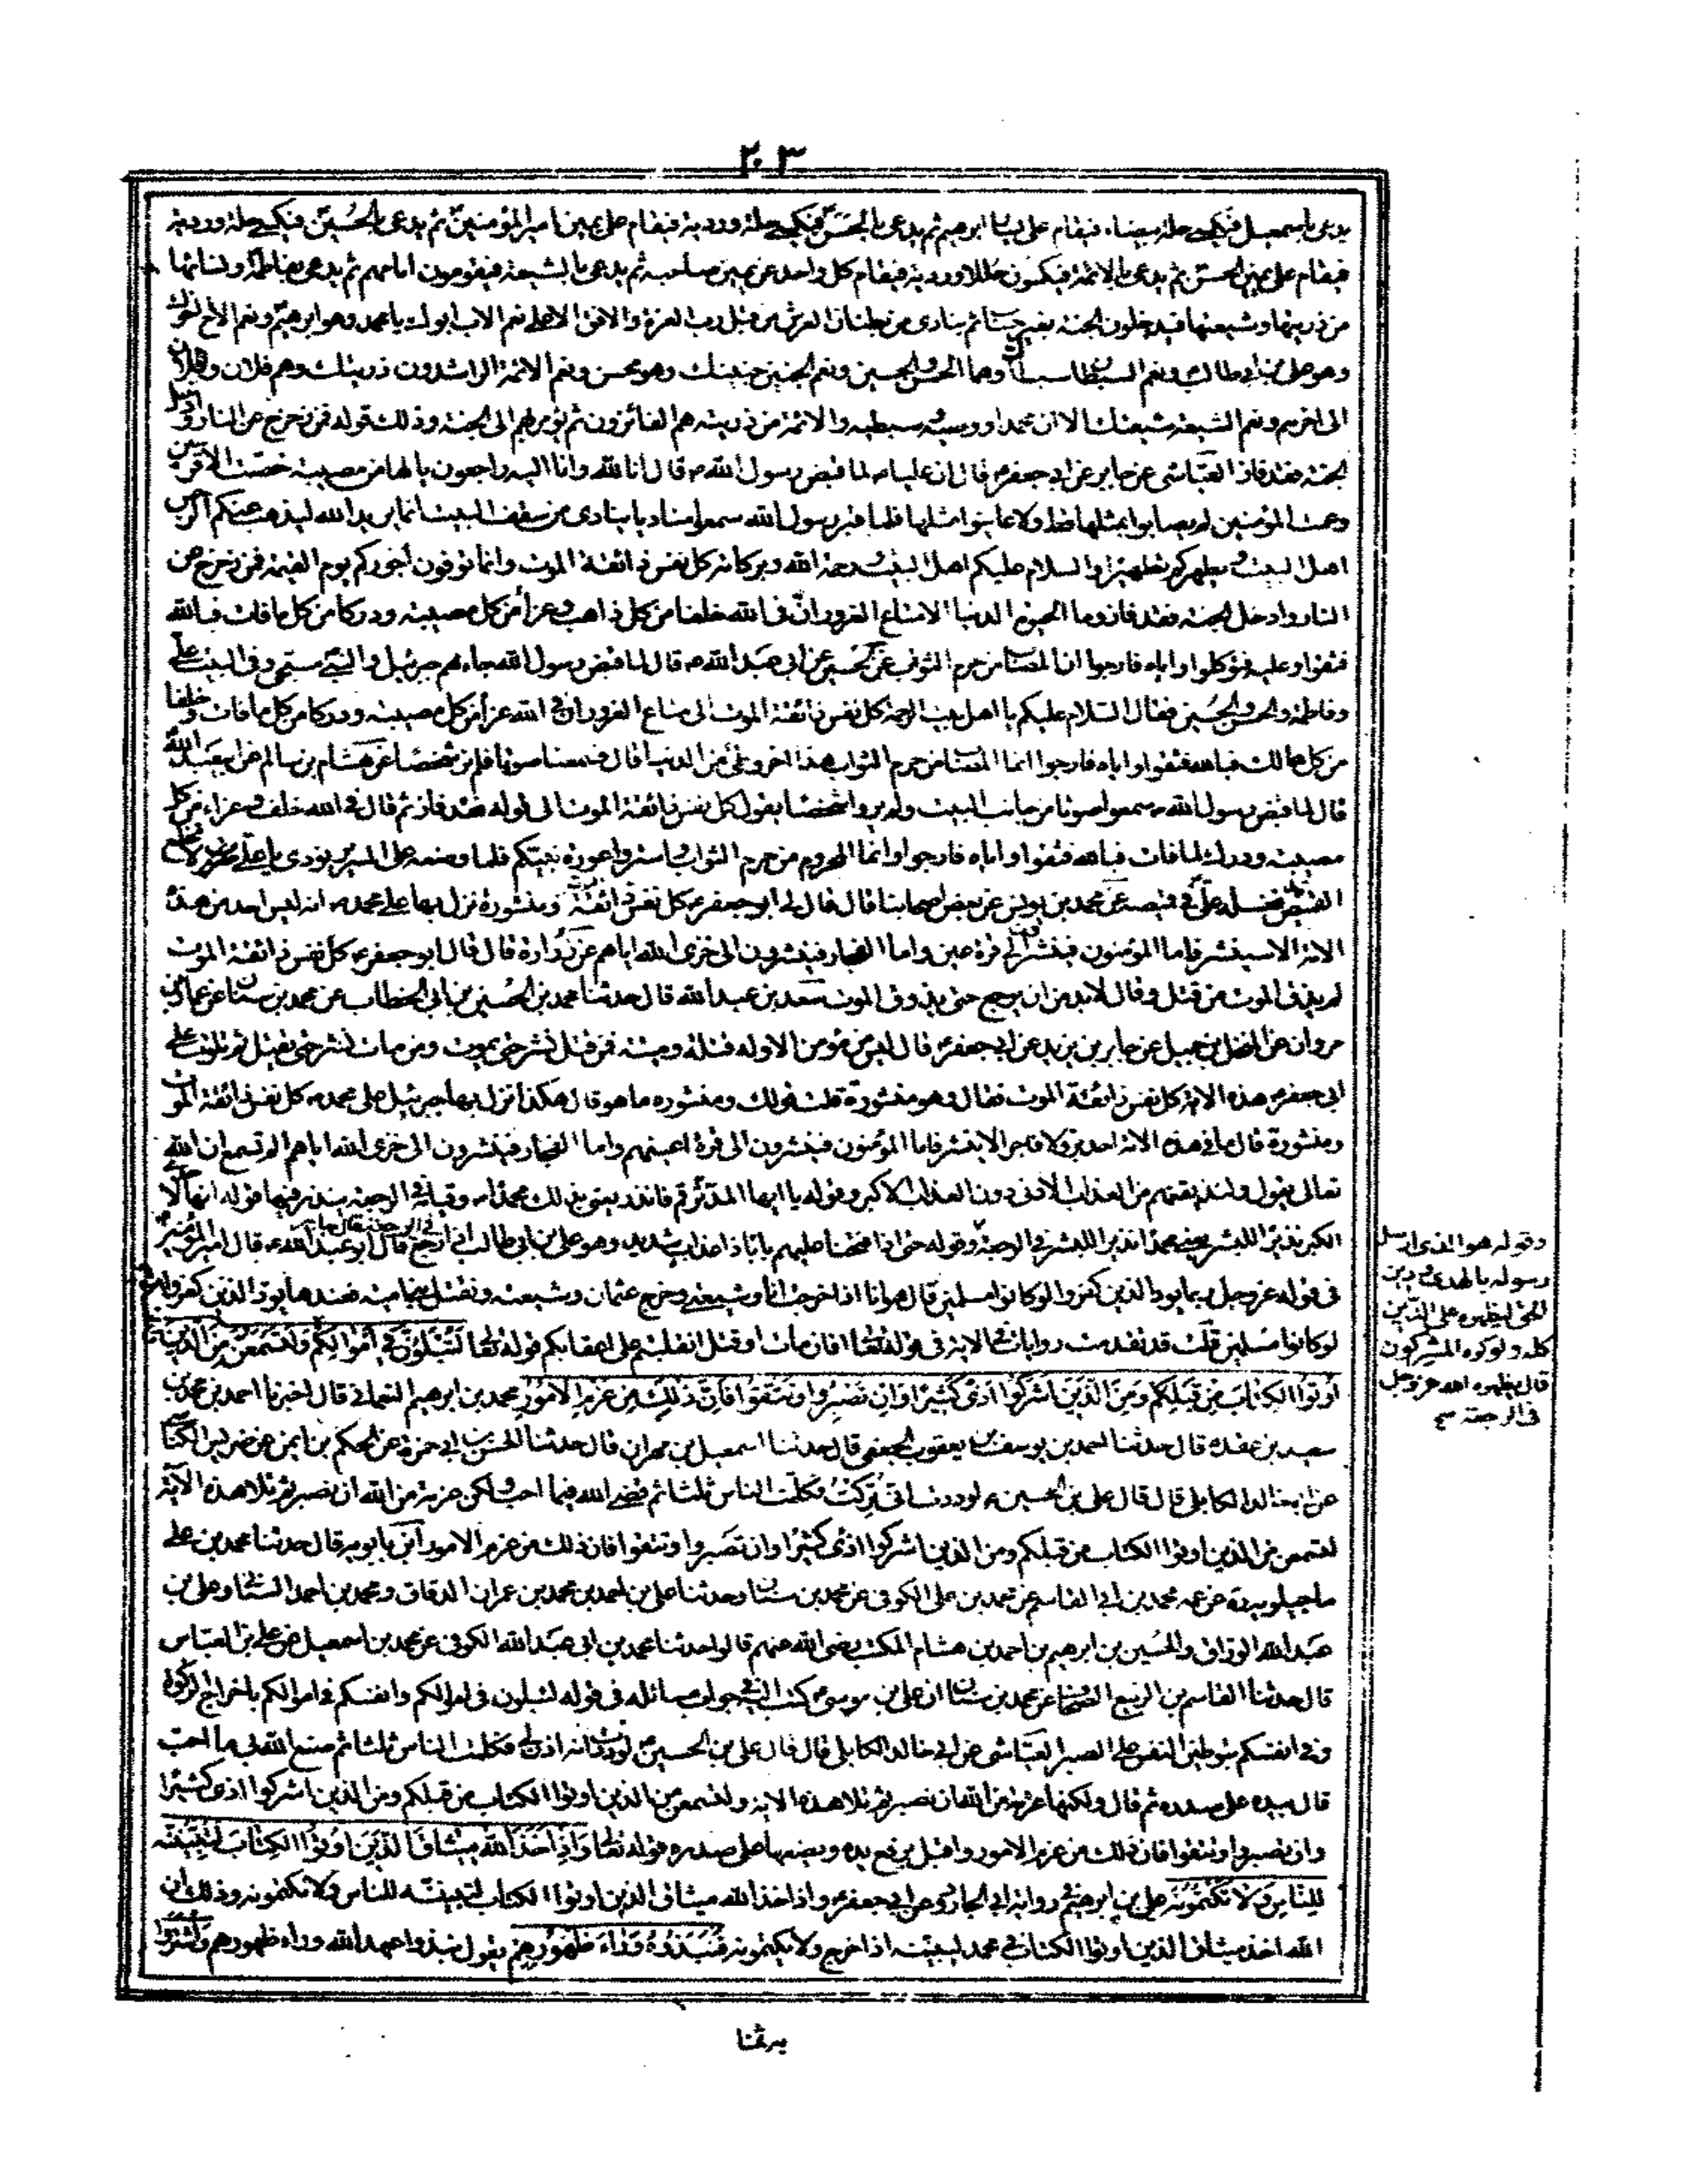 ٢٠٣
يدعى باسمعيل فيكسى حلة بيضاء فيقام على يسار ابرهيم ثم يدعى بالحسن فيكسى حلة وردية فيقام على يمين امير المؤمنين ثم يدعى بالحسين فيكسى حلة وردية
فيقام على يمين الحسن ثم يدعى بالائمة فيكسون حللا وردية فيقام كل واحد عن يمين صاحبه ثم يدعى بالشيعة فيقومون امامهم ثم يدعى بفاطمة ونسائها
من ذريتها وشيعتها فيدخلون الجنة بغير حساب ثم ينادى من بطنان العرش من قبل رب العزة والافق الاعلى نعم الاب ابوك يا محمد وهو ابرهيم ونعم الاخ اخوك
وهو على بن ابي طالب ونعم السبطان سبطاك وهما الحسن والحسين ونعم الجنين جنينك وهو محسن ونعم الائمة الراشدون ذريتك وهم فلان وفلان
الى اخرهم ونعم الشيعة شيعتك الا ان محمدا ووصيه وسبطيه والائمة من ذريته هم الفائزون ثم يؤمر بهم الى الجنة وذلك قوله فمن زحزح عن النار وادخل
الجنة فقد فاز العياشى عن جابر عن ابي جعفر ع قال ان عليا ع لما قبض رسول الله ص قال انا لله وانا اليه راجعون يا لها من مصيبة خصت الاقربين
وعمت المؤمنين لم يصابوا بمثلها قط ولا عاينوا مثلها فلما قبر رسول الله سمعوا مناديا ينادى من سقف البيت انما يريد الله ليذهب عنكم الرجس
اهل البيت ويطهركم تطهيرا والسلام عليكم اهل البيت ورحمة الله وبركاته كل نفس ذائقة الموت وانما توفون اجوركم يوم القيمة فمن زحزح عن
النار وادخل الجنة فقد فاز وما الحيوة الدنيا الا متاع الغرور ان فى الله خلفا من كل ذاهب وعزاء من كل مصيبة ودركا من كل ما فات فبالله
فثقوا وعليه فتوكلوا واياه فارجوا انما المصاب من حرم الثواب عن الحسين عن ابى عبد الله ع قال لما قبض رسول الله جاءهم جبرئيل والنبى مسجى وفى البيت على
وفاطمة والحسن والحسين فقال السلام عليكم يا اهل بيت الرحمة كل نفس ذائقة الموت الى متاع الغرور ان فى الله عزاء من كل مصيبة ودركا من كل ما فات وخلفا
من كل هالك فبالله فثقوا واياه فارجوا انما المصاب من حرم الثواب هذا اخر وطئى من الدنيا قال فسمعنا صوتا فلم نر شخصا عن هشام بن سالم عن ابي عبد الله
قال لما قبض رسول الله ص سمعوا صوتا من جانب البيت ولم يروا شخصا يقول كل نفس ذائقة الموت الى قوله فقد فاز ثم قال فى الله خلف وعزاء من كل
مصيبة ودرك لما فات فبالله فثقوا واياه فارجوا وانما المحروم من حرم الثواب واستروا عورة نبيكم فلما وضعه على السرير نودى يا على لا تخلع
القميص فغسله على فى قميصه عن محمد بن يونس عن بعض اصحابنا قال قال لى ابو جعفر ع كل نفس ذائقة ومنشورة نزل بها على محمد ص انه ليس احد من هذه
الامة الا سينشر فاما المؤمنون فينشرون الى قرة عين واما الفجار فينشرون الى خزى الله اياهم عن زرارة قال قال ابو جعفر ع كل نفس ذائقة الموت
لم يذق الموت من قتل وقال لابد من ان يرجع حتى يذوق الموت سعد بن عبد الله قال حدثنا محمد بن الحسين بن ابى الخطاب عن محمد بن سنان عن عمار بن
مروان عن المنخل بن جميل عن جابر بن يزيد عن ابي جعفر ع قال ليس من مؤمن الا وله قتلة وميتة من قتل نشر حتى يموت ومن مات نشر حتى يقتل ثم تلوت على
ابى جعفر ع هذه الاية كل نفس ذائقة الموت فقال وهو منشورة قلت قولك ومنشوره ما هو قال هكذا نزل بها جبرئيل على محمد ص كل نفس ذائقة الموت
ومنشورة قال ما فى هذه الامة احد بر ولا فاجر الا ينشر فاما المؤمنون فينشرون الى قرة اعينهم واما الفجار فينشرون الى خزى الله اياهم الم تسمع ان الله
تعالى يقول ولنذيقنهم من العذاب الادنى دون العذاب الاكبر وقوله يا ايها المدثر قم فانذر يعنى بذلك محمدا ص وقيامه فى الرجعة ينذر فيها قوله انها لاحدى
الكبر نذيرا للبشر يعنى محمدا نذيرا للبشر فى الرجعة وقوله حتى اذا فتحنا عليهم بابا ذا عذاب شديد وهو على بن ابي طالب اذا رجع فى الرجعة قال ابو عبد الله ع قال امير المؤمنين
فى قوله عز وجل ربما يود الذين كفروا لو كانوا مسلمين قال هو انا اذا خرجت انا وشيعتى وخرج عثمان وشيعته ونقتل بنى امية فعندها يود الذين كفروا
لو كانوا مسلمين قلت قد تقدمت روايات فى الاية فى قوله تعالى افان مات او قتل انقلبتم على اعقابكم قوله تعالى لتبلون فى اموالكم ولتسمعن من الذين
اوتوا الكتاب من قبلكم ومن الذين اشركوا اذى كثيرا وان تصبروا وتتقوا فان ذلك من عزم الامور محمد بن ابرهيم النعمانى قال اخبرنا احمد بن محمد بن
سعيد بن عقدة قال حدثنا احمد بن يوسف بن يعقوب الجعفى قال حدثنا اسمعيل بن مهران قال حدثنا الحسن بن ابي حمزة عن الحكم بن ايمن عن ضريس الكناسى
عن ابي خالد الكابلى قال قال على بن الحسين ع لوددت انى تركت فكلمت الناس ثلثا ثم قضى الله فيما احب ولكن عزمة من الله ان نصبر ثم تلا هذه الاية
لتسمعن من الذين اوتوا الكتاب من قبلكم ومن الذين اشركوا اذى كثيرا وان تصبروا وتتقوا فان ذلك من عزم الامور ابن بابويه قال حدثنا محمد بن على
ماجيلويه ره عن عمه محمد بن ابي القاسم عن محمد بن على الكوفى عن محمد بن سنان وحدثنا على بن احمد بن محمد بن عمران الدقاق ومحمد بن احمد السنانى وعلى بن
عبد الله الوراق والحسين بن ابرهيم بن احمد بن هشام المكتب رضى الله عنهم قالوا حدثنا محمد بن ابى عبد الله الكوفى عن محمد بن اسمعيل عن على بن العباس
قال حدثنا القاسم بن الربيع الصحاف عن محمد بن سنان ان على بن موسى ع كتب اليه فى جواب مسائله فى قوله لتبلون فى اموالكم وانفسكم فى اموالكم باخراج الزكوة
وفى انفسكم بتوطين النفس على الصبر العياشى عن ابي خالد الكابلى قال قال على بن الحسين ع لوددت انه اذن لى فكلمت الناس ثلثا ثم صنع الله بى ما احب
قال بيده على صدره ثم قال ولكنها عزمة من الله ان نصبر ثم تلا هذه الاية ولتسمعن من الذين اوتوا الكتاب من قبلكم ومن الذين اشركوا اذى كثيرا
وان تصبروا وتتقوا فان ذلك من عزم الامور واقبل يرفع يده ويضعها على صدره قوله تعالى واذ اخذ الله ميثاق الذين اوتوا الكتاب لتبيننه
للناس ولا تكتمونه على بن ابرهيم فى رواية ابى الجارود عن ابي جعفر ع واذ اخذ الله ميثاق الذين اوتوا الكتاب لتبيننه للناس ولا تكتمونه وذلك ان
الله اخذ ميثاق الذين اوتوا الكتاب فى محمد ليبيننه اذا خرج ولا يكتمونه فنبذوه وراء ظهورهم يقول نبذوا عهد الله وراء ظهورهم واشتروا
به ثمنا
وقوله هو الذى ارسل
رسوله بالهدى ودين
الحق ليظهره على الدين
كله ولو كره المشركون
قال يظهره الله عز وجل
فى الرجعة